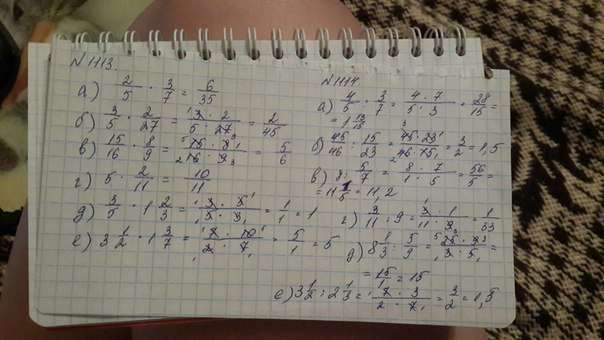 N 1113.
а) 2/5 · 3/7 = 6/35
б) 3/5 · 2/27 = 3 · 2 / 5 · 27 = 2/45
в) 15/16 · 8/9 = 15 · 8 / 16 · 9 = 5/6
г) 5 · 2/11 = 10/11
д) 3/5 · 1 2/3 = 3 · 5 / 5 · 3 = 1/1 = 1
е) 3 1/2 · 1 3/7 = 7 · 10 / 2 · 7 = 5/1 = 5
N 1114
а) 4/5 : 3/7 = 4 · 7 / 5 · 3 = 28/15 =
= 1 13/15
б) 45/46 : 15/23 = 45 · 23 / 46 · 15 = 3/2 = 1,5
в) 8 : 5/7 = 8 · 7 / 1 · 5 = 56/5 =
= 11 1/5 = 11,2
г) 3/11 : 9 = 3 · 1 / 11 · 9 = 1/33
д) 8 1/3 : 5/9 = 25 · 9 / 3 · 5 =
= 15/1 = 15
е) 3 1/2 : 2 1/3 = 7 · 3 / 2 · 7 = 3/2 = 1,5